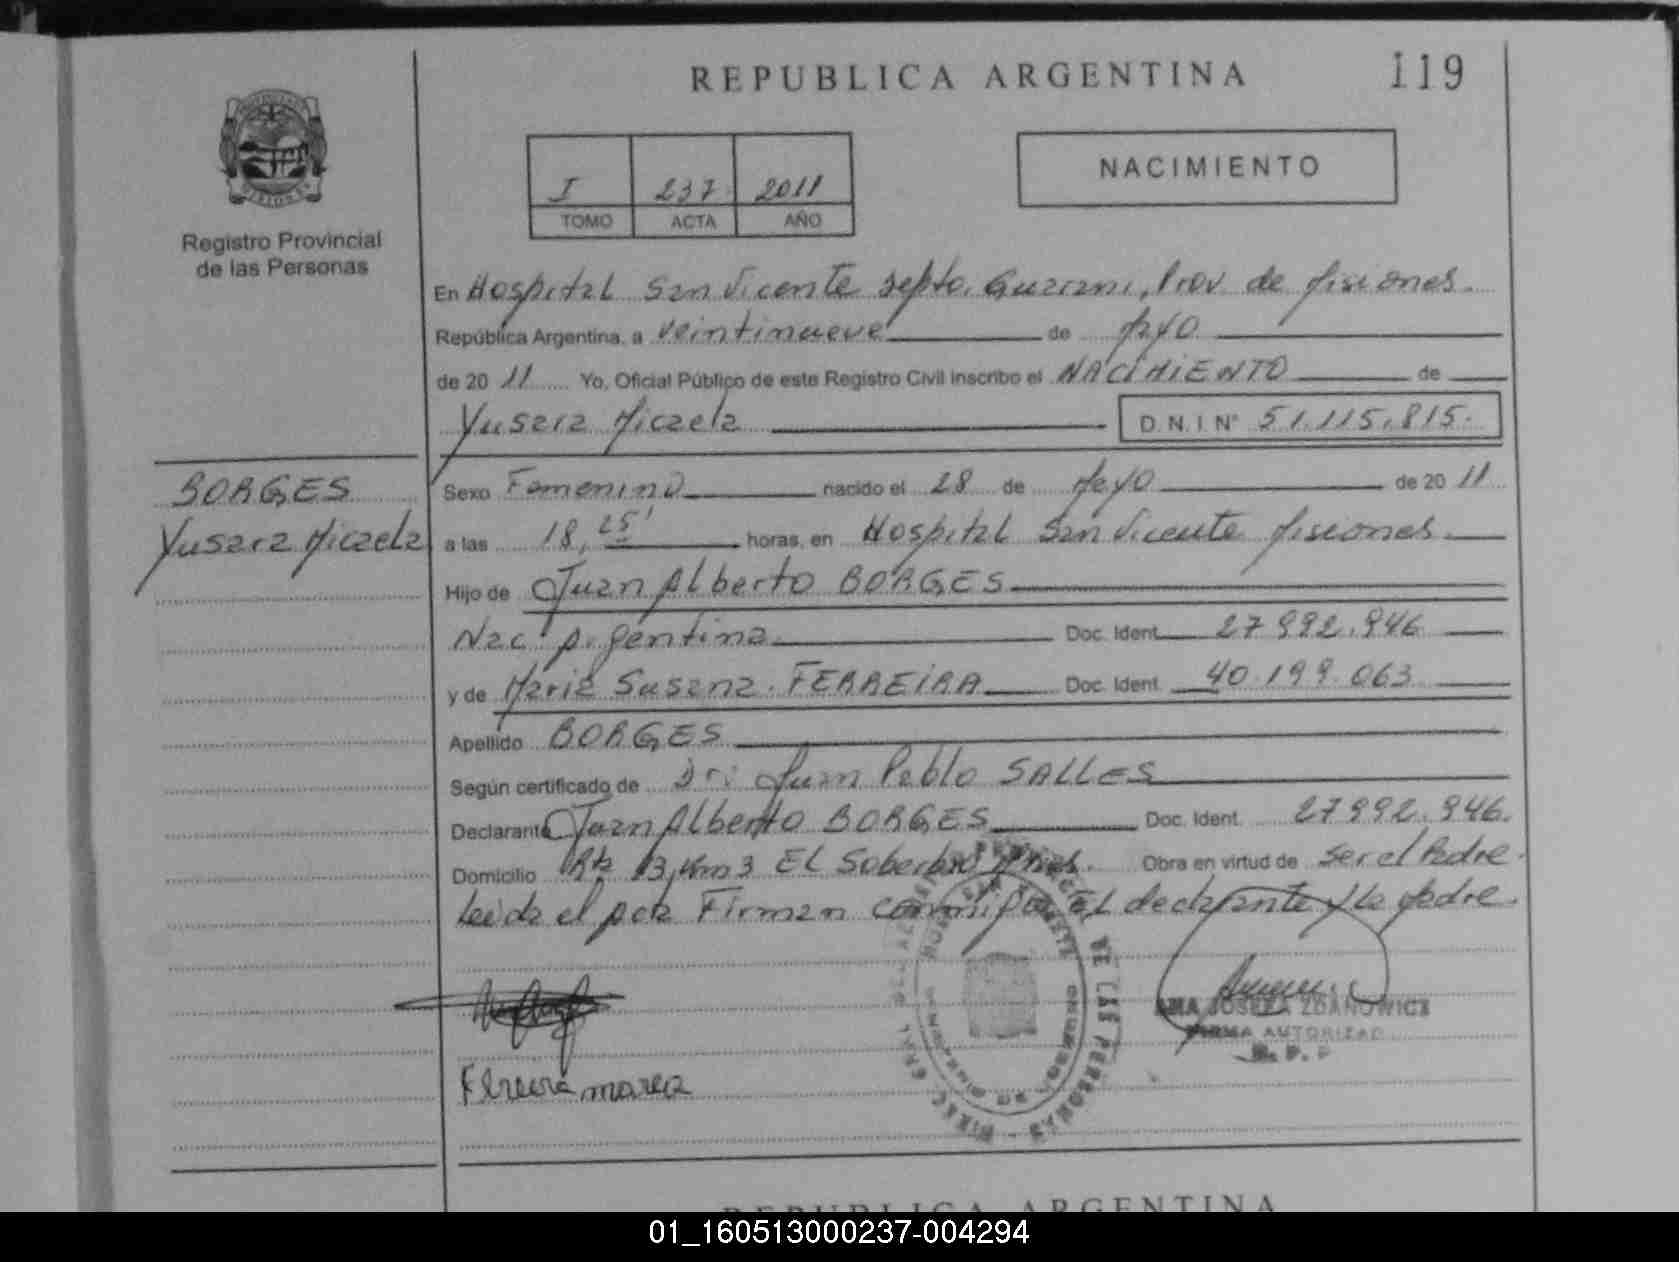 REPUBLICA ARGENTINA 119
PROVINCIA DE MISIONES
Registro Provincial
de las Personas
I 237 2011
TOMO ACTA AÑO
NACIMIENTO
En Hospital San Vicente Depto. Guarani, Prov. de Misiones.
República Argentina, a veintinueve de Mayo
de 20 11 Yo, Oficial Público de este Registro Civil inscribo el NACIMIENTO de
Yusara Micaela D.N.I. Nº 51.115.815.
BORGES
Yusara Micaela
Sexo Femenino nacido el 28 de Mayo de 20 11
a las 18,25' horas, en Hospital San Vicente Misiones.
Hijo de Juan Alberto BORGES
Nac. Argentina Doc. Ident. 27.992.946
y de Maria Susana FERREIRA Doc. Ident. 40.199.063
Apellido BORGES
Según certificado de Dr. Juan Pablo SALLES
Declarante Juan Alberto BORGES Doc. Ident. 27992.946.
Domicilio Rta 13, Km 3 EL Soberbio Mnes. Obra en virtud de Ser el Padre.
Leida el Acta Firman conmigo EL declarante y la Madre.
DE LAS PERSONAS
ANA JOSEFA ZDANOWICZ
FIRMA AUTORIZAD
Ferreira maria
REPUBLICA ARGENTINA
01_160513000237-004294